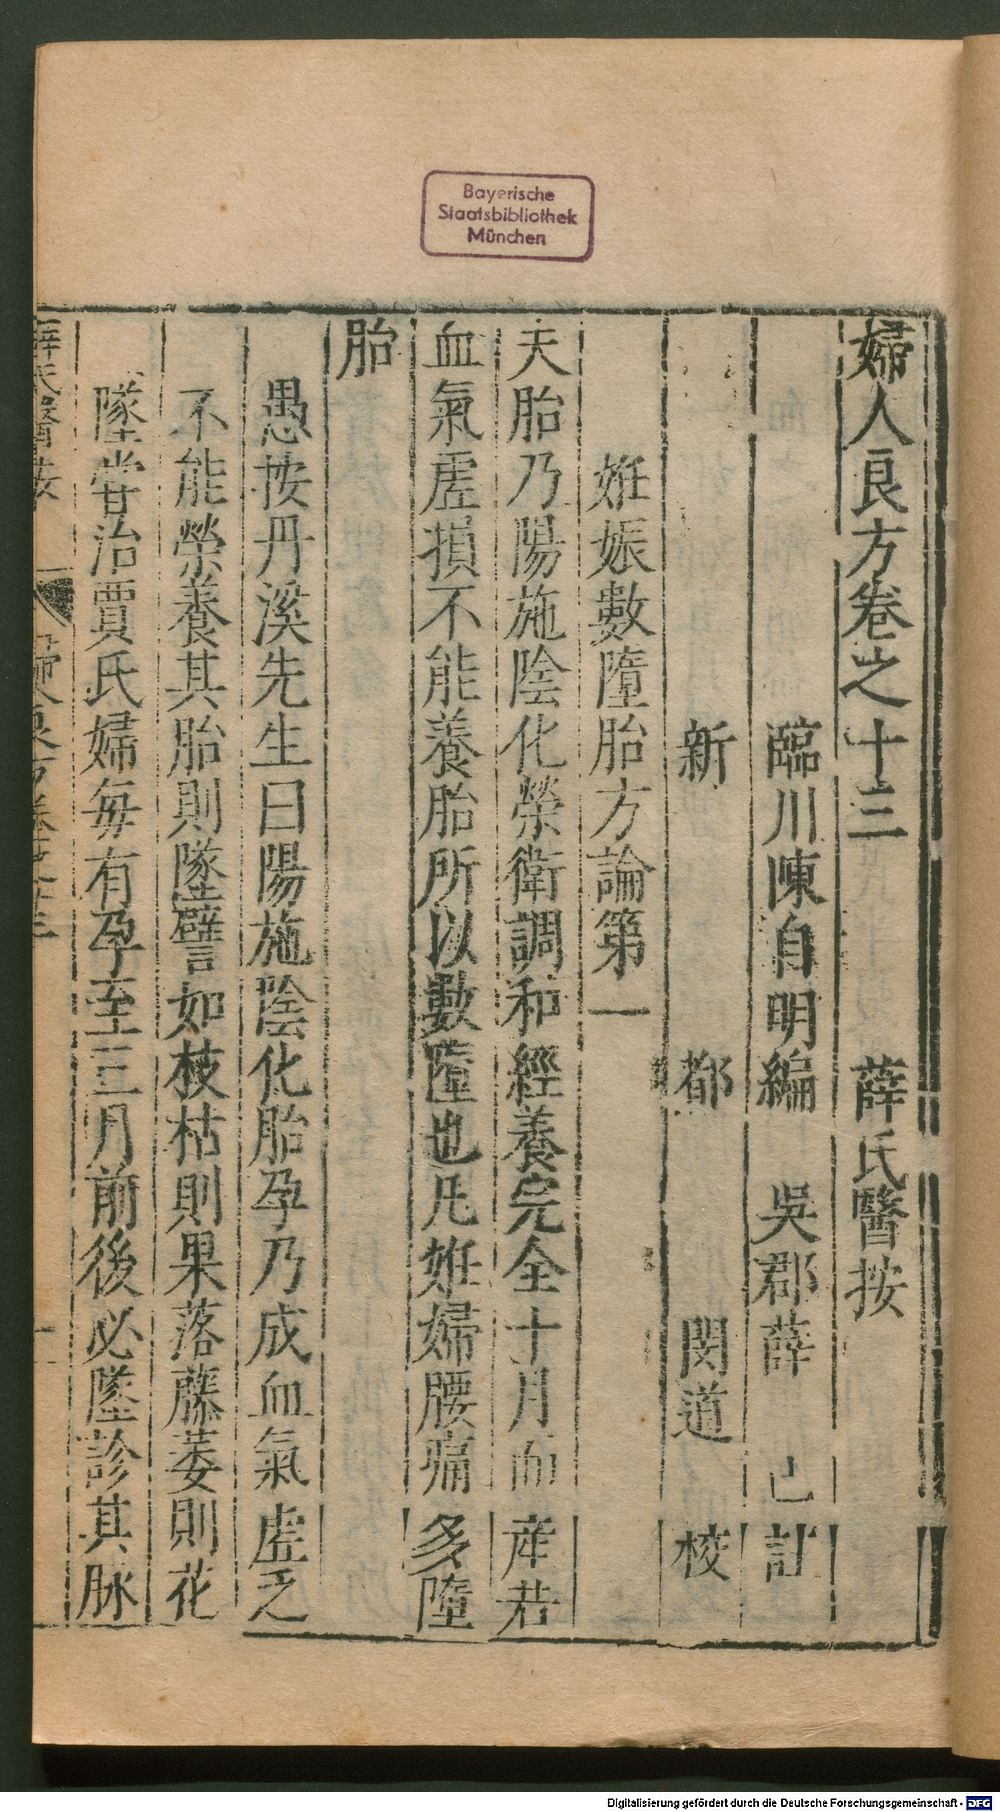 Bayerische
Staatsbibliothek
München
婦人良方卷之十三　薛氏醫按
臨川陳自明編　吳郡薛　己訂
新　都　閔道　校
姙娠數墮胎方論第一
夫胎乃陽施陰化榮衛調和經養完全十月而產若
血氣虛損不能養胎所以數墮也凡姙婦腰痛多墮
胎
愚按丹溪先生曰陽施陰化胎孕乃成血氣虛乏
不能榮養其胎則墜譬如枝枯則果落藤萎則花
墜嘗治賈氏婦每有孕至三月前後必墜診其脉
Digitalisierung gefördert durch die Deutsche Forschungsgemeinschaft - DFG